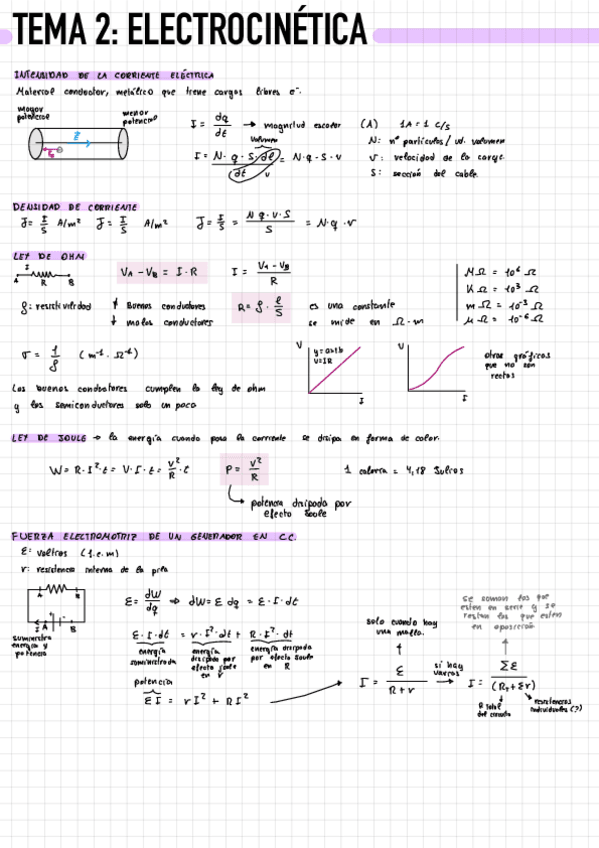 TEMA 2: ELECTROCINÉTICA
INTENSIDAD DE LA CORRIENTE ELÉCTRICA
Material conductor, metálico que tiene cargas libres e⁻.
mayor potencial
menor potencial
I = dq/dt → magnitud escalar (A) 1A = 1 C/s
volumen
I = N · q · S · dl / dt = N · q · S · v
N: nº partículas / ud. volumen
v: velocidad de la carga.
S: sección del cable.
DENSIDAD DE CORRIENTE
J = I/S A/m² J = I/S A/m² J = I/S = N q · v · S / S = N · q · v
LEY DE OHM
I
A R B
VA − VB = I · R I = VA − VB / R
MΩ = 10⁶ Ω
KΩ = 10³ Ω
mΩ = 10⁻³ Ω
μΩ = 10⁻⁶ Ω
ρ: resistividad
↑ buenos conductores
↓ malos conductores
R = ρ · l/S
es una constante
se mide en Ω · m
σ = 1/ρ (m⁻¹ · Ω⁻¹)
V
V = IR
I
V
I
otras gráficas
que no son
rectas
Los buenos conductores cumplen la ley de ohm
y los semiconductores solo un poco
LEY DE JOULE → la energía cuando pasa la corriente se disipa en forma de calor.
W = R · I² · t = V · I · t = V²/R · t
P = V²/R
1 caloría = 4,18 Julios
potencia disipada por
efecto Joule
FUERZA ELECTROMOTRIZ DE UN GENERADOR EN C.C.
ε: voltios (f.e.m)
r: resistencia interna de la pila
R
suministra
energía y
potencia
ε = dW/dq ⇒ dW = ε dq = ε · I · dt
ε · I · dt = r · I² · dt + R · I² · dt
energía
suministrada
energía
disipada por
efecto Joule
en r
energía disipada
por efecto Joule
en R
potencia
εI = rI² + RI²
solo cuando hay
una malla.
I = ε / R + r
si hay
varios
I = Σε / (RT + Σr)
se suman los que
estén en serie y se
restan los que estén
en oposición
R total
del circuito
resistencias
individuales (?)